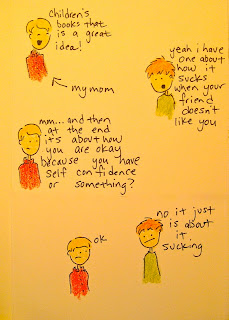 children's
books that
is a great
idea!
my mom
yeah i have
one about
how it
sucks
when your
friend
doesn't
like you
mm... and then
at the end
it's about how
you are okay
because you have
self confidence
or something?
no it just
is about
it
sucking
ok